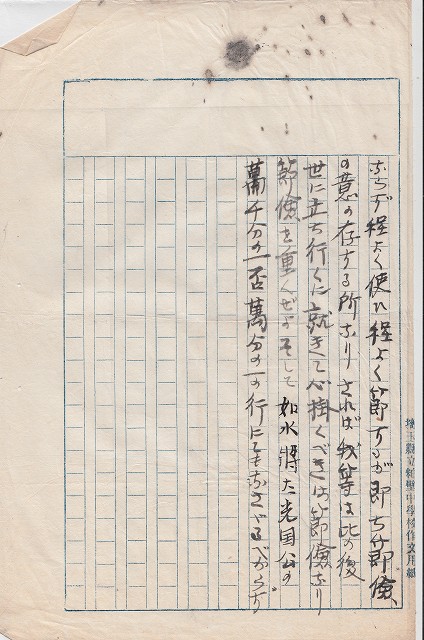 ならず程よく使ひ程よく節するが即ち節儉
の意の存する所なりされば我等は此の後
世に立ち行くに就きて心掛くべきは節儉なり
節儉を重んぜよそして如水將た光国公の
萬千分の一否萬分の一の行にてもなさゞるべからず
埼玉縣立粕壁中學校作文用紙